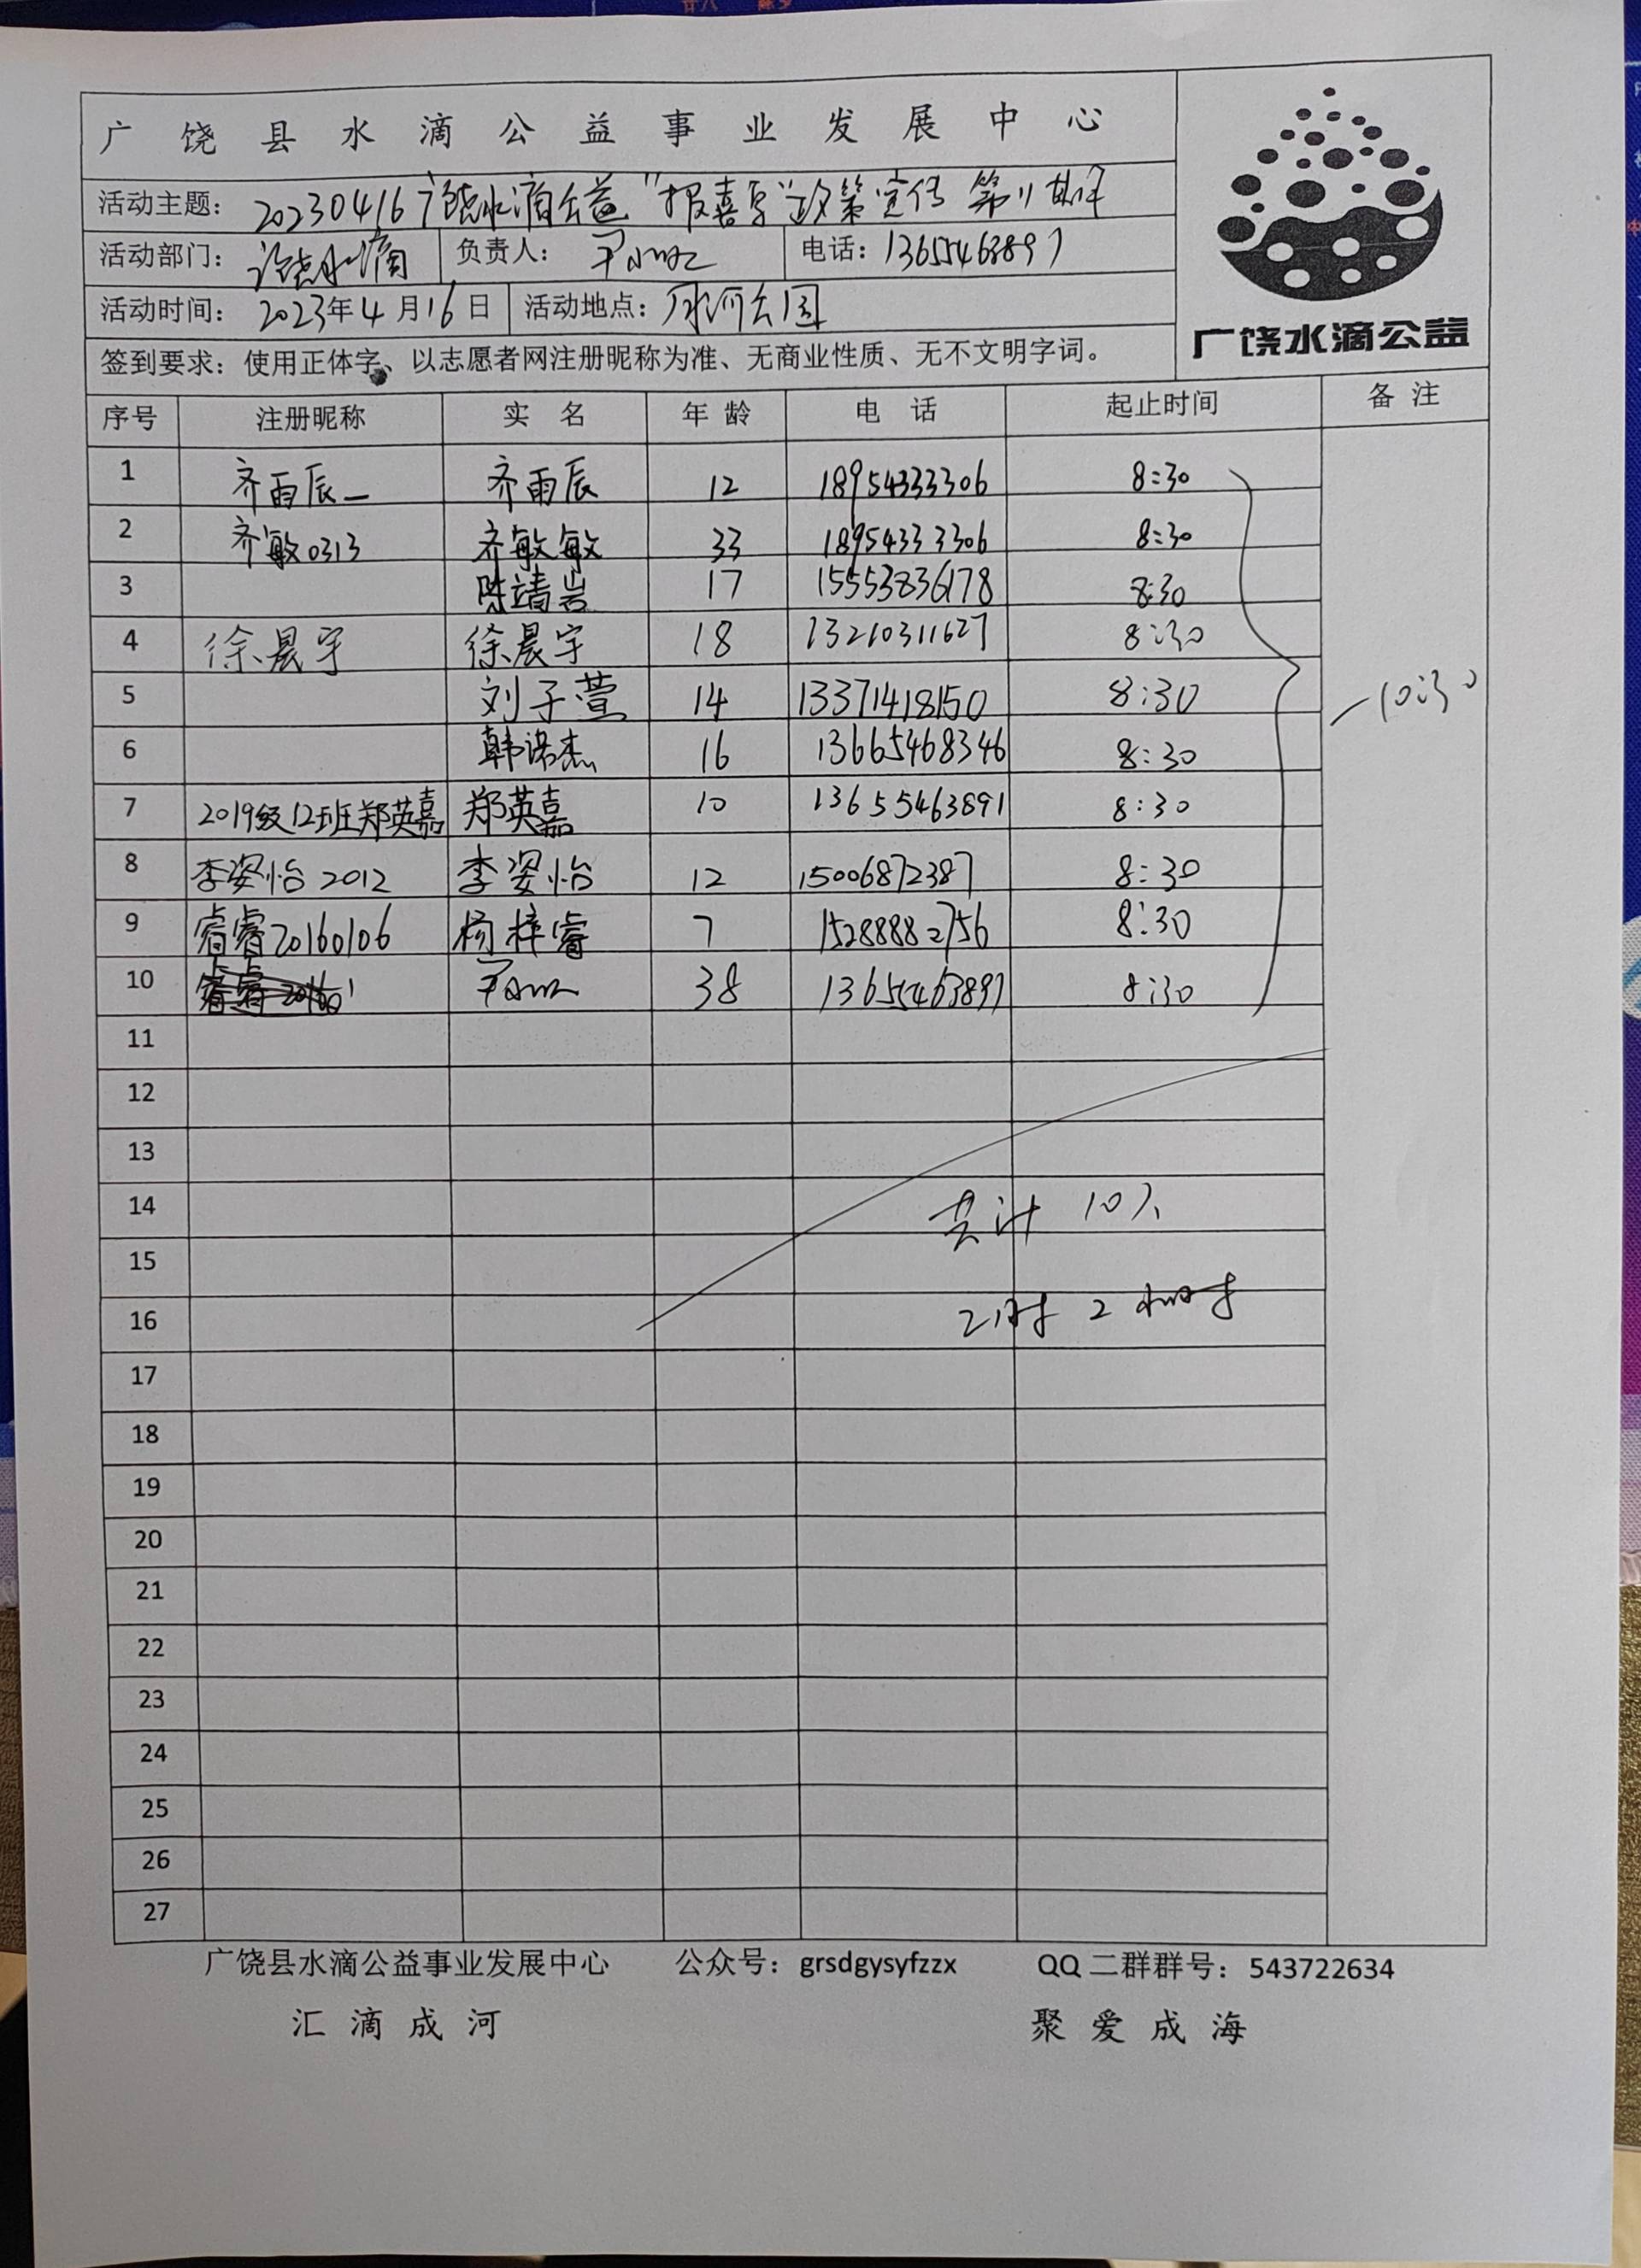 广饶县水滴公益事业发展中心
活动主题： 20230416广饶水滴公益"报喜鸟"政策宣传 第11期
广饶水滴公益
活动部门： 广饶水滴 负责人： 电话：13655463897
活动时间： 2023年4月16日 活动地点： 月河公园
签到要求：使用正体字、以志愿者网注册昵称为准、无商业性质、无不文明字词。
序号 注册昵称 实 名 年 龄 电 话 起止时间 备 注
1 齐雨辰_ 齐雨辰 12 18954333306 8:30
2 齐敏0313 齐敏敏 33 18954333306 8:30
3 陈靖岩 17 15553836178 8:30
4 徐晨宇 徐晨宇 18 13210311627 8:30
5 刘子萱 14 13371418150 8:30
-10:30
6 韩诺杰 16 13665468346 8:30
7 2019级12班郑英嘉 郑英嘉 10 13655463891 8:30
8 李姿怡2012 李姿怡 12 15006872387 8:30
9 睿睿20160106 杨梓睿 7 15288882756 8:30
10 38 13655463897 8:30
11
12
13
14 共计 10人
15
16 2时 2小时
17
18
19
20
21
22
23
24
25
26
27
广饶县水滴公益事业发展中心 公众号：grsdgysyfzzx QQ二群群号：543722634
汇滴成河 聚爱成海